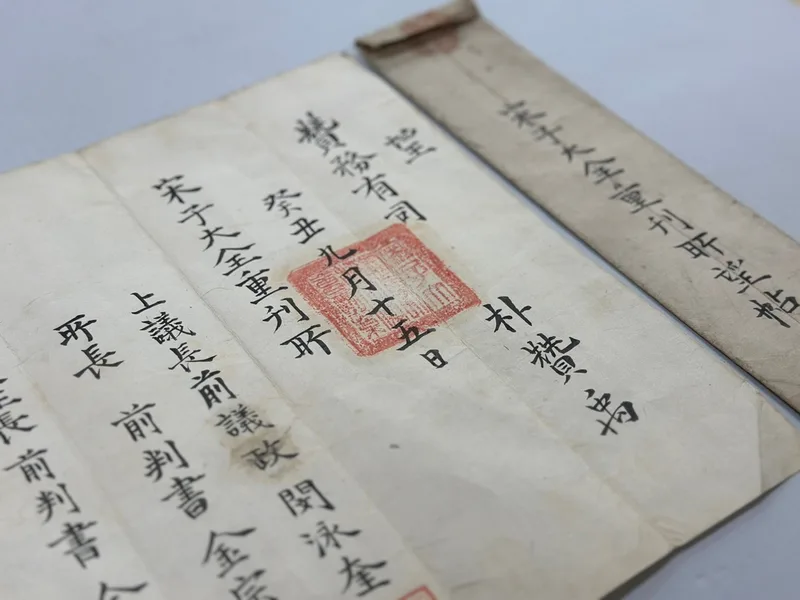 宋子大全重刊所望帖
望
贊務有司 朴贊禹
癸丑九月十五日
宋子大全重刊所
上議長前議政閔泳奎
所長 前判書金宗
長 前判書金